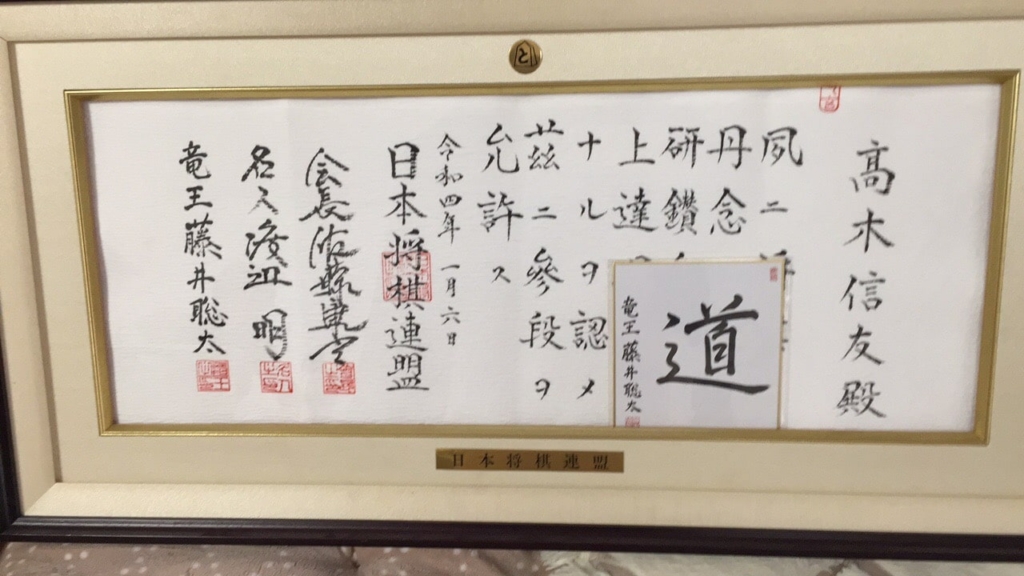 高木信友殿
夙ニ
丹念
研鑽
上達
ナルヲ認メ
茲ニ參段ヲ
允許ス
令和四年一月六日
日本将棋連盟
会長佐藤康光
名人渡辺明
竜王藤井聡太
道
竜王藤井聡太
日本将棋連盟
と